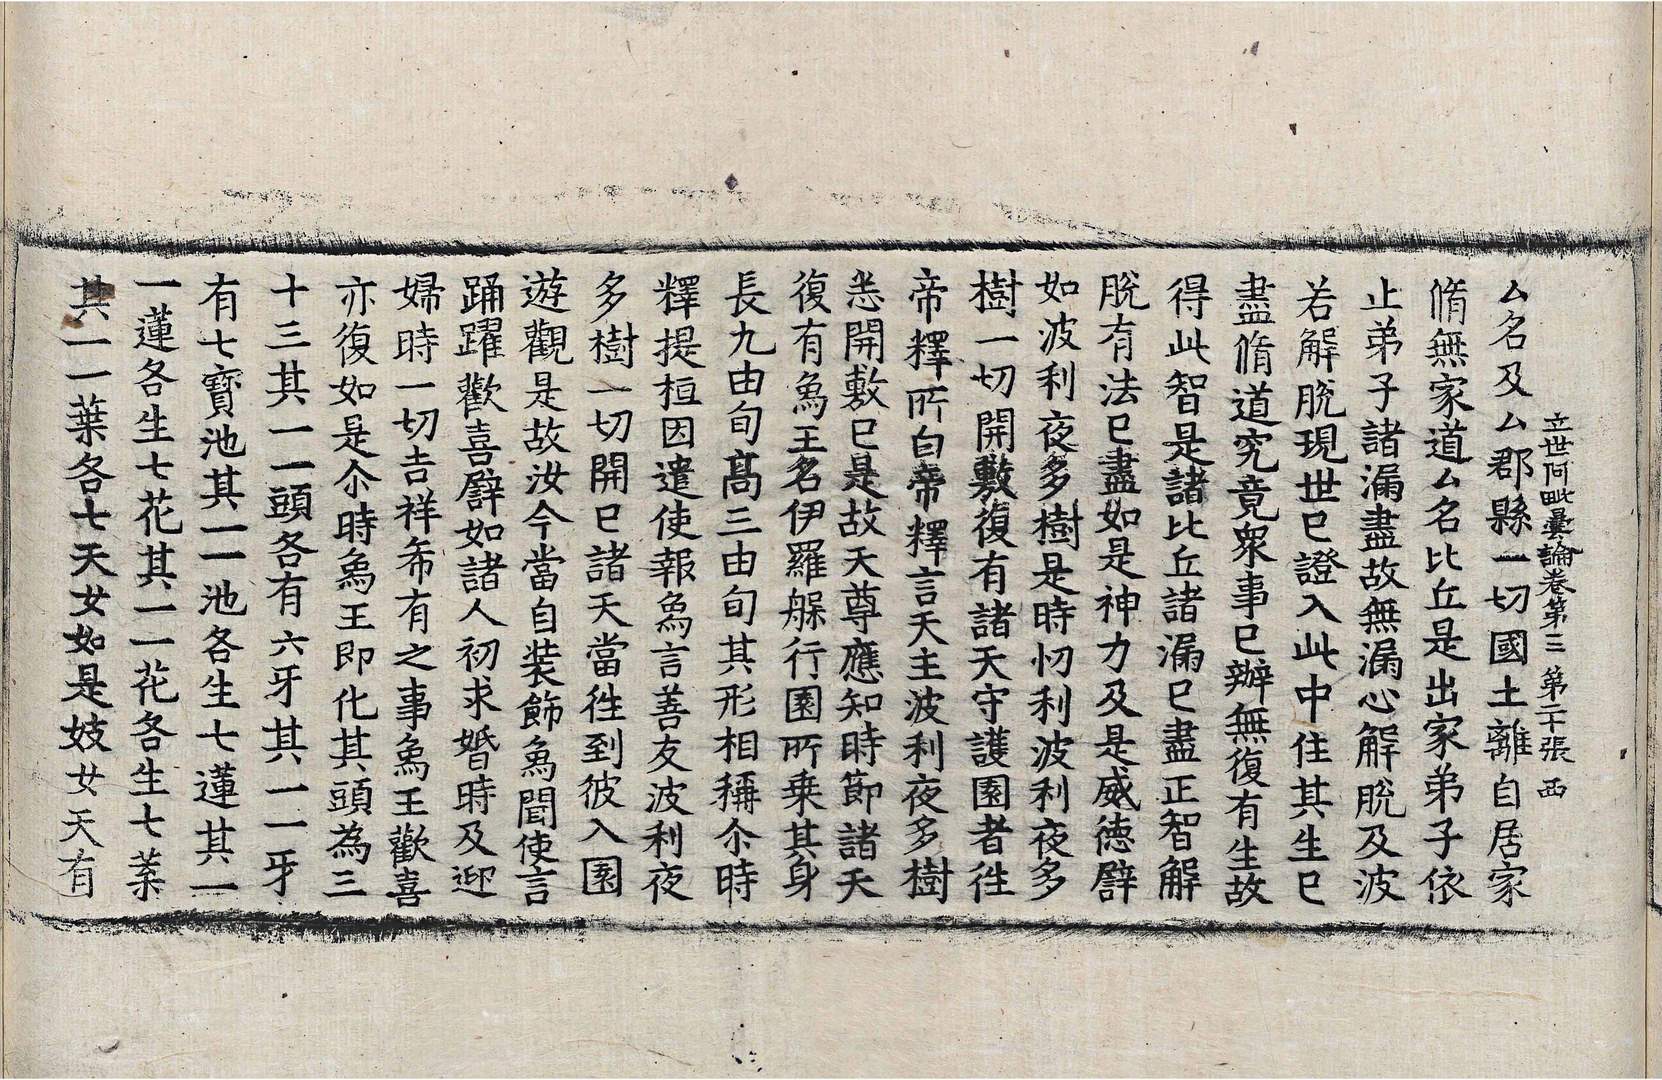 立世阿毗曇論卷第三 第二十張 西
厶名及厶郡縣一切國土離自居家
脩無家道厶名比丘是出家弟子依
止弟子諸漏盡故無漏心解脫及波
若解脫現世已證入此中住其生已
盡脩道究竟衆事已辦無復有生故
得此智是諸比丘諸漏已盡正智解
脫有法已盡如是神力及是威德譬
如波利夜多樹是時忉利波利夜多
樹一切開敷復有諸天守護園者徃
帝釋所白帝釋言天主波利夜多樹
悉開敷已是故天尊應知時節諸天
復有象王名伊羅槃行園所乗其身
長九由旬髙三由旬其形相稱尒時
釋提桓因遣使報象言善友波利夜
多樹一切開已諸天當徃到彼入園
遊觀是故汝今當自装飾象聞使言
踊躍歡喜譬如諸人初求婚時及迎
婦時一切吉祥希有之事象王歡喜
亦復如是尒時象王即化其頭為三
十三其一一頭各有六牙其一一牙
有七寳池其一一池各生七蓮其一
一蓮各生七花其一一花各生七葉
其一一葉各七天女如是妓女天有